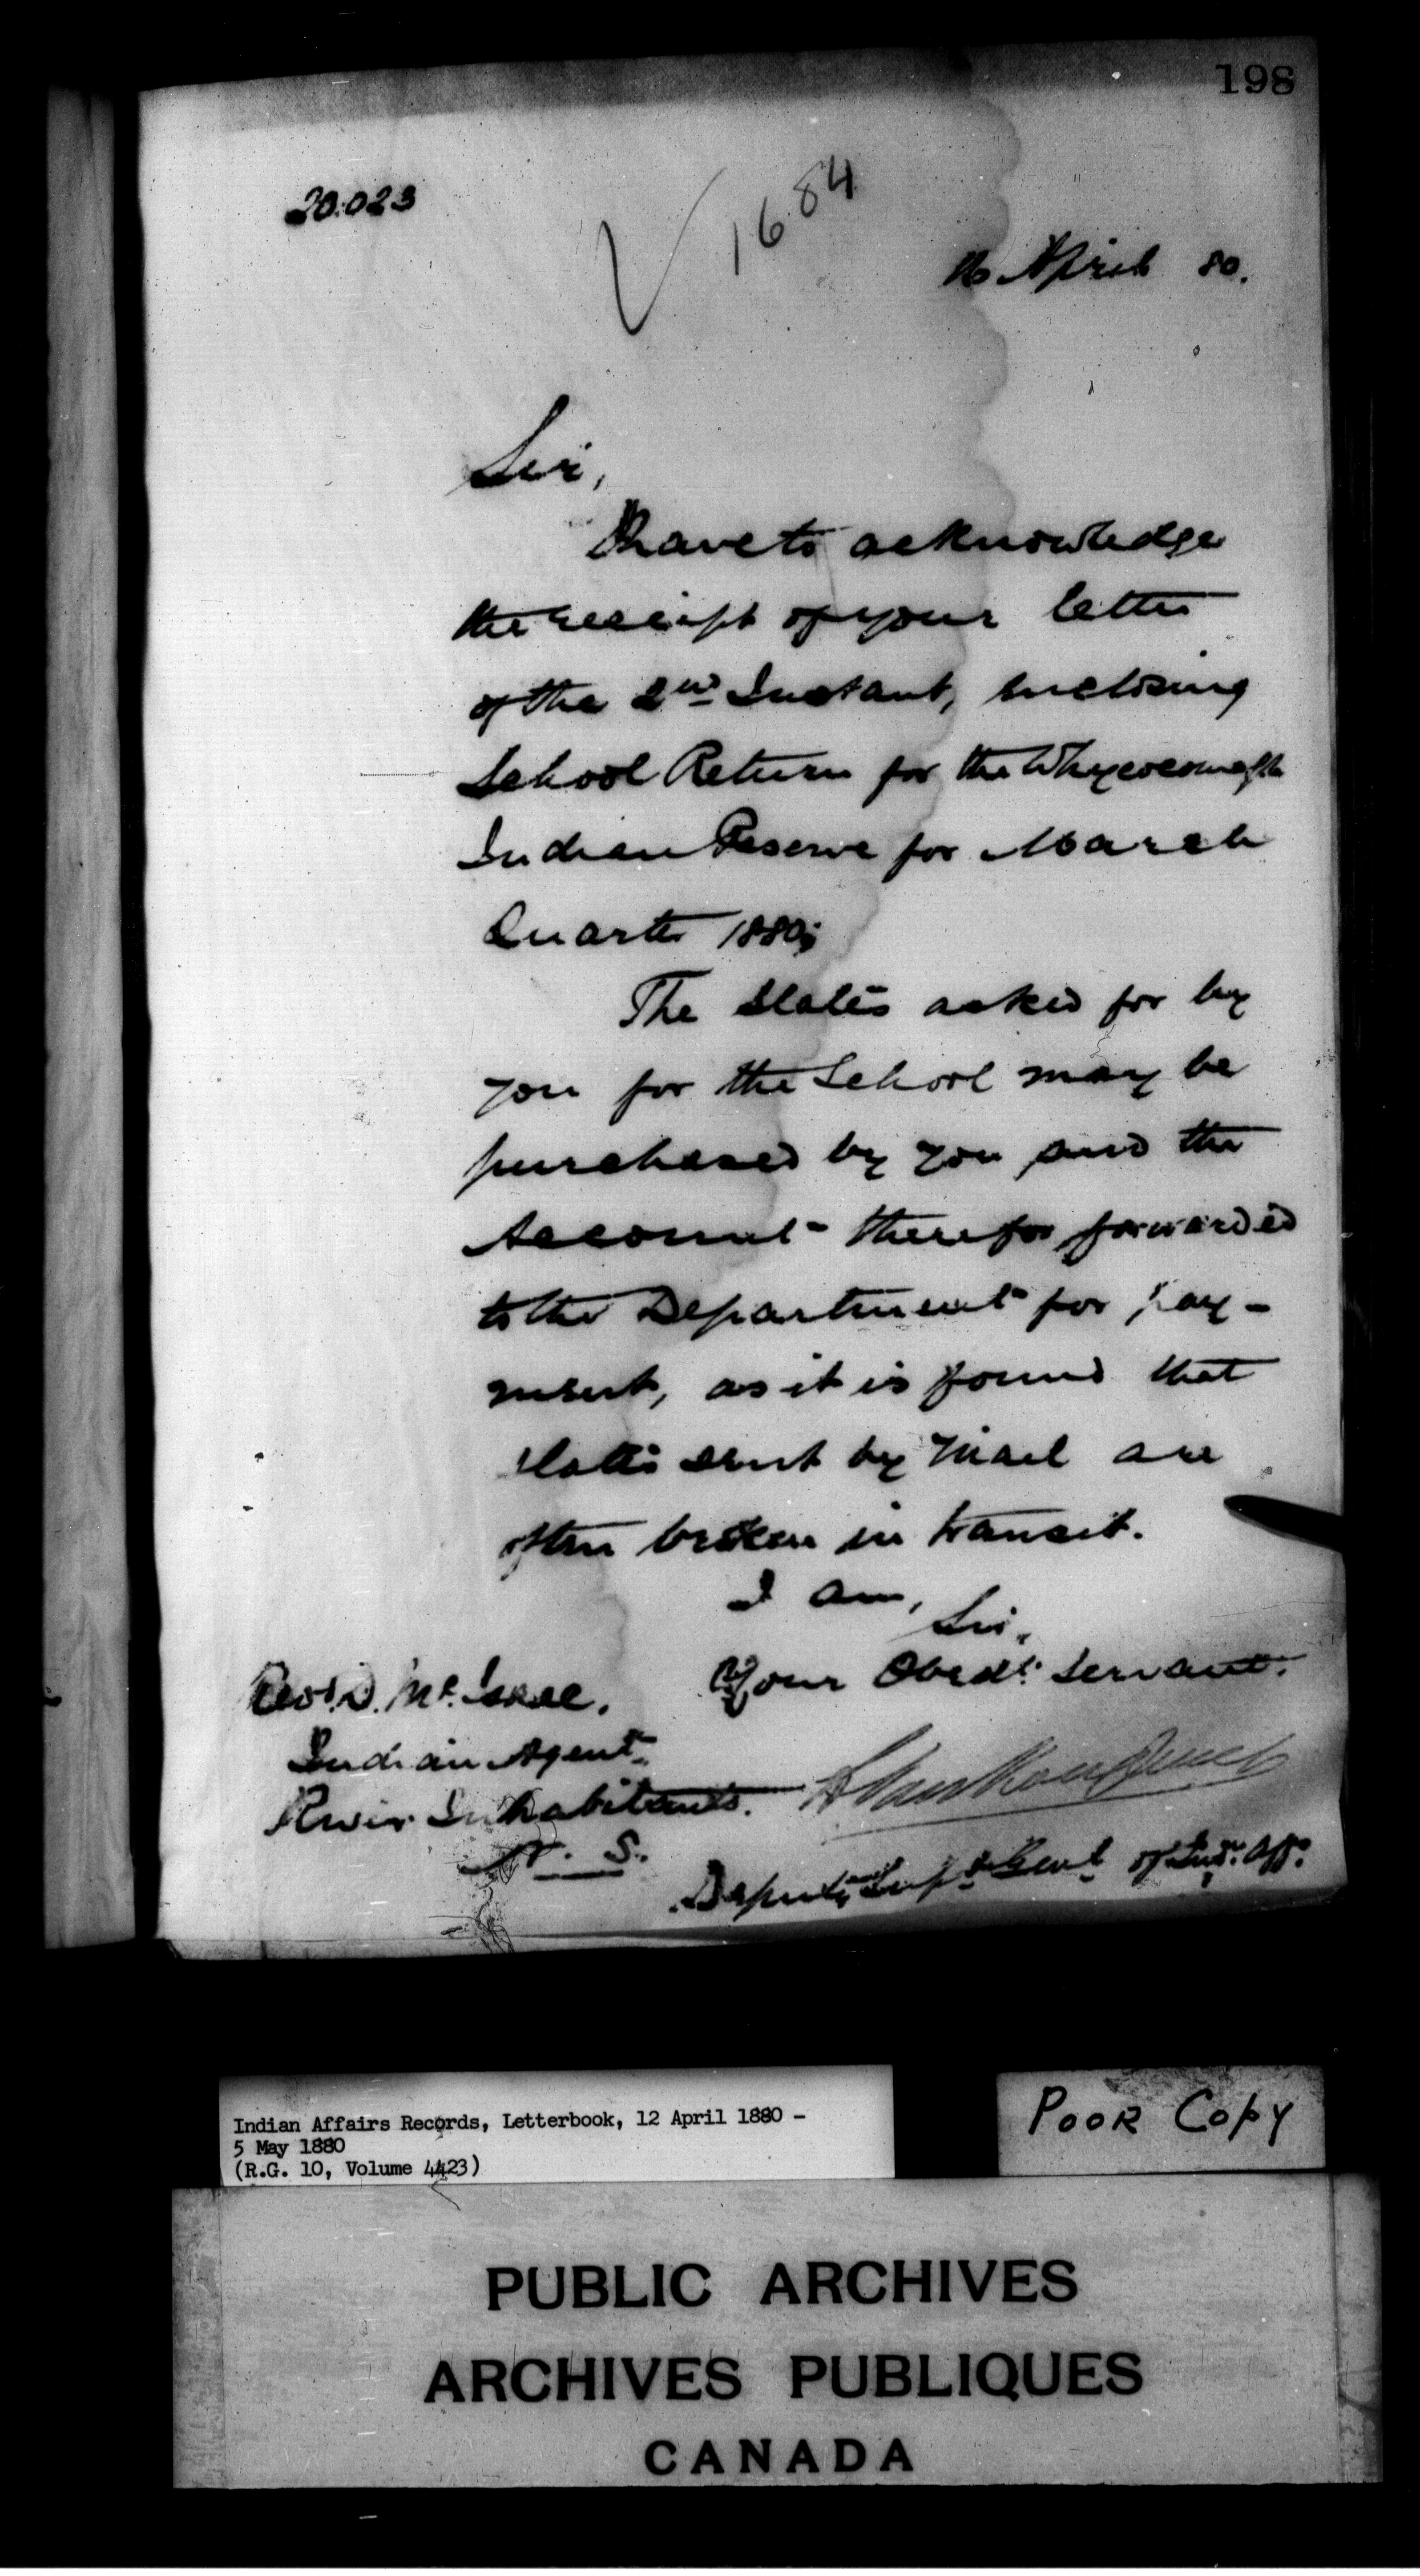 198
20.023
1684
16 April 80.
Sir,
I have to acknowledge
the receipt of your letter
of the 2nd Instant, inclosing
School Return for the Whycocomagh
Indian Reserve for March
Quarter 1880;
The slates asked for by
you for the School may be
purchased by you and the
Account therefor forwarded
to the Department for pay-
ment, as it is found that
slates sent by mail are
often broken in transit.
I am,
Sir,
Your Obedt. Servant.
Revd. D. McIsaac,
Indian Agent
River Inhabitants.
N. S.
L VanKoughnet
Deputy Supt. Genl. of Ind. Aff.
Indian Affairs Records, Letterbook, 12 April 1880 -
5 May 1880
(R.G. 10, Volume 4423)
POOR COPY
PUBLIC ARCHIVES
ARCHIVES PUBLIQUES
CANADA